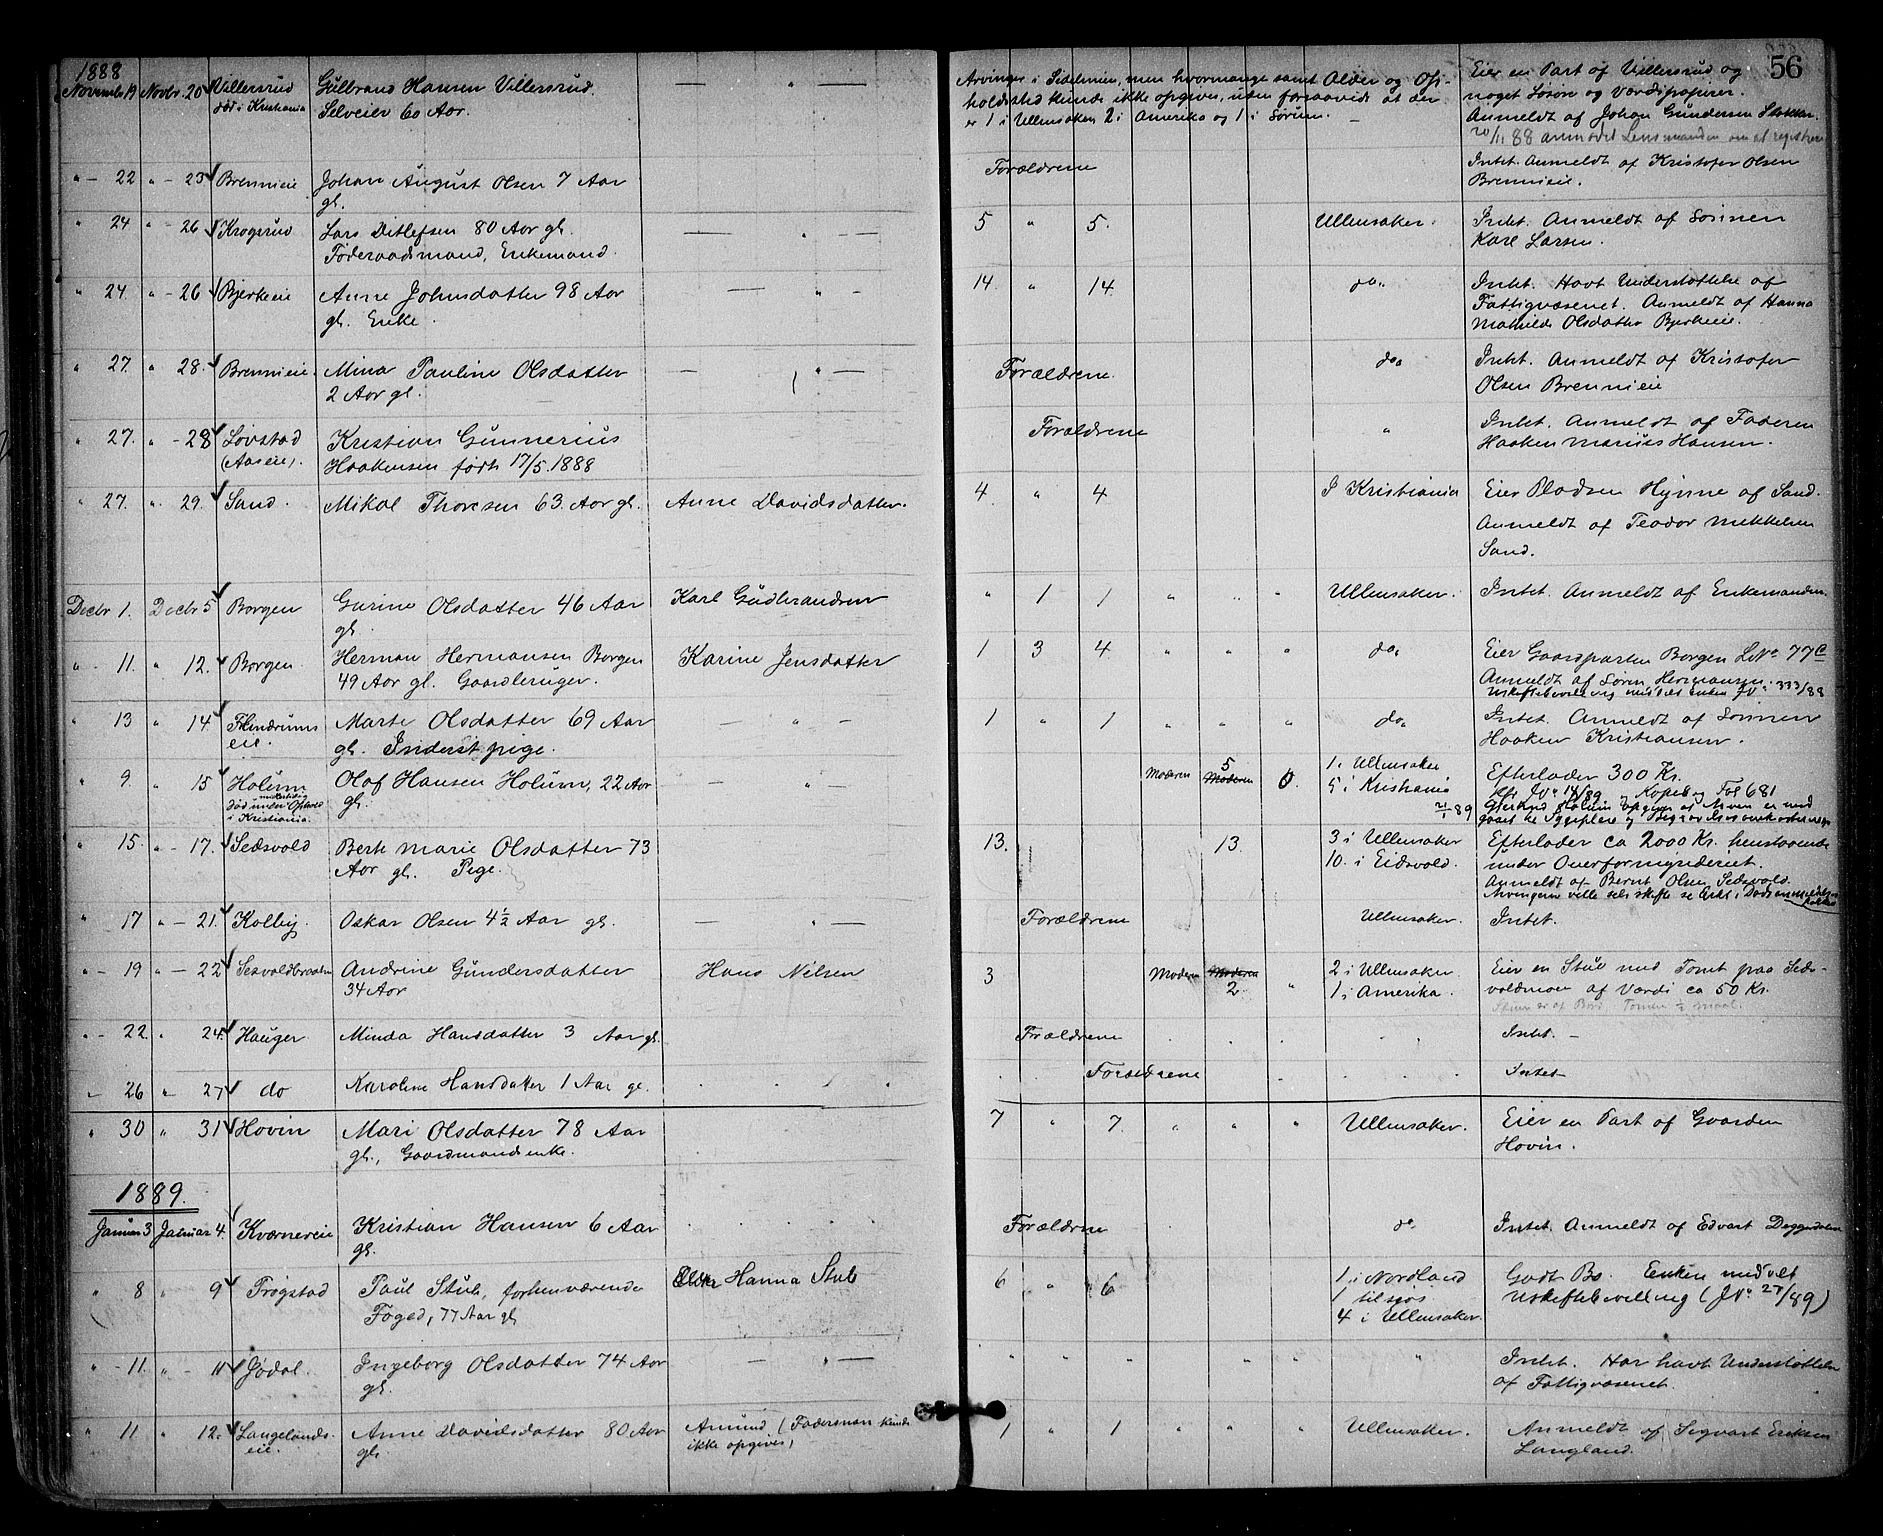 56
1888
Novemb. 19 Novbr. 20 Villersrud Gulbrand Hansen Villersrud. — „ — Arvinger i Sidelinien, men hvormange samt Alder og Op- Eier en Part af Villersrud og
død i Kristiania Selveier 60 Aar. holdssted kunde ikke opgives, uden forsaavidt at der noget Løsøre og Værdipapirer.
er 1 i Ullensaker, 2 i Amerika og 1 i Sørum. — Anmeldt af Johan Gundersen
20/11 88 anmodet Lensmanden om at registrere
„ — 22 „ — 23 Brennieie Johan August Olsen 7 Aar Forældrene Intet. Anmeldt af Kristofer Olsen
gl. Brennieie.
„ 24 „ — 26 Krogsrud Lars Ditlefsen 80 Aar gl. — „ — 5 „ 5. Ullensaker. Intet. Anmeldt af Sønnen
Føderaadsmand, Enkemand. Karl Larsen.
„ 24. „ — 26 Bjerkeie Anne Johnsdatter 98 Aar — „ — 14. „ 14. do„ Intet. Havt Understøttelse af
gl. Enke. Fattigvæsenet. Anmeldt af Hanna
Mathilde Olsdatter Bjerkeie.
„ 27. „ 28. Brennieie. Mina Pauline Olsdatter — „ — Forældrene. do„ Intet. Anmeldt af Kristofer
2 Aar gl. Olsen Brennieie
„ 27. „ — 28 Løvstad Kristian Gunnerius Forældrene „ Intet. Anmeldt af Faderen
(Aaseie). Haakensen født 17/5. 1888 Haaken Marius Hansen.
„ 27. „ 29. Sand. Mikal Thoresen 63. Aar gl. Anne Davidsdatter. 4 „ 4 I Kristiania Eier Pladsen Hynne af Sand.
Anmeldt af Teodor Mekkelsen
Sand.
Decbr 1. Decbr 5 Borgen Gurine Olsdatter 46 Aar Karl Gudbrandsen „ 1 1 „ „ „ Ullensaker. Intet. Anmeldt af Enkemanden.
gl.
„ — 11. „ 12. Borgen. Herman Hermansen Borgen Karine Jensdatter 1 3 4 „ „ „ do„ Eier Gaardparten Borgen LNo 77c
49 Aar gl. Gaardbruger. Anmeldt af Søren Hermansen.
Uskiftebevilling meddelt Enken JNo 333/88
„ 13 „ 14 eie. Marte Olsdatter 69 Aar — „ — 1 „ 1 „ „ „ do„ Intet. Anmeldt af Sønnen
gl. Inderst pige. Haaken Kristiansen.
„ 9. „ 15 Holum Olaf Hansen Holum, 22 Aar — „ — Moderen 5 Moderen 6. 1. Ullensaker Efterlader 300 Kr.
død under Ophold gl. 5 i Kristiania cfr JNo 14/89 og Kopibog Fol 681
i Kristiania. 21/1 89
„ 15. „ — 17. Sedsvold Berte Marie Olsdatter 73 13. 13. 3 i Ullensaker Efterlader ca 2000 Kr. henstaaende
Aar gl. Pige. 10. i Eidsvold. under Overformynderiet.
Anmeldt af Bernt Olsen Sedsvold.
Arvingerne ville selv skifte
„ 17 „ — 21. Kolbij Oskar Olsen 4½ Aar gl. — „ — Forældrene Ullensaker. Intet.
„ — 19 „ — 22 Sesvoldbraaten Andrine Gundersdatter Hans Nilsen 3 Moderen Moderen „ 2 i Ullensaker. Eier en Stue med Tomt paa Seds-
34 Aar 2. 1 i Amerika. voldmoen af Værdi ca 50 Kr.
„ — 22. „ 24. Hauger Minda Hansdatter 3 Aar gl. Forældrene Intet. —
„ 26 „ — 27 do Karoline Hansdatter 1 Aar gl. Forældrene Intet
„ 30 „ 31 Hovin Mari Olsdatter 78 Aar 7 „ 7. „ „ „ Ullensaker. Eier en Part af Gaarden
gl., Gaardmandsenke. Hovin.
1889.
Januar 3 Januar 4. Kværnereie Kristian Hansen 6 Aar Forældrene do Intet. Anmeldt af Edvart
gl.
„ 8 „ 9 Trøgstad Paul Stub, forhenværende Hanna Stub 6 „ 6 1 i Nordland Godt Bo. Enken meddelt
Foged, 77 Aar gl 1 tilsjøs Uskiftebevilling (JNo 27/89)
4 i Ullensaker.
„ — 11. „ — 11 Jødal. Ingeborg Olsdatter 74 Aar — „ — „ „ „ „ „ „ Intet. Har havt Understøttelse
gl. af Fattigvæsenet.
„ 11 „ 12. Langelands- Anne Davidsdatter 80 Aar Amund (Fadersnavn kunde 1 „ 1 „ „ „ Ullensaker. Anmeldt af Sigvart Eriksen
eie. gl. ikke opgives) Langland.